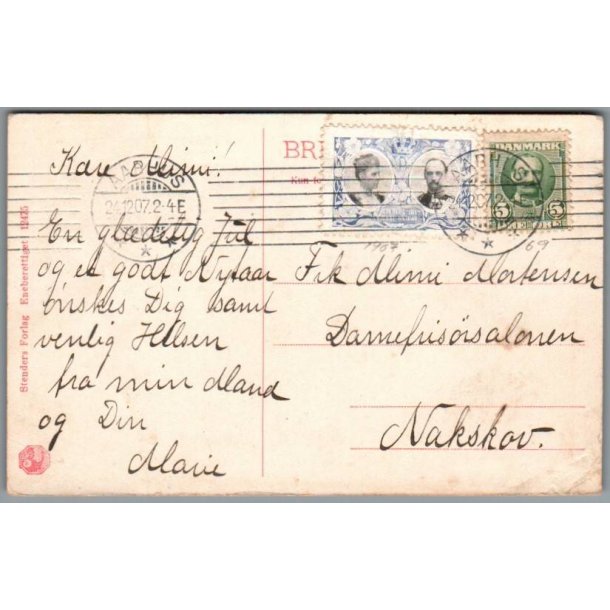 BRE
Kære Mimi!
AARHUS
24.12.07. 2-4 E
DANMARK
5 5
1907
69
En glædelig Jul
og et godt Nytaar
ønskes Dig samt
venlig Hilsen
fra min Mand
og Din
Marie
Frk Mimi Mortensen
Damefrisørsalonen
Nakskov.
Stenders Forlag Eneberettiget